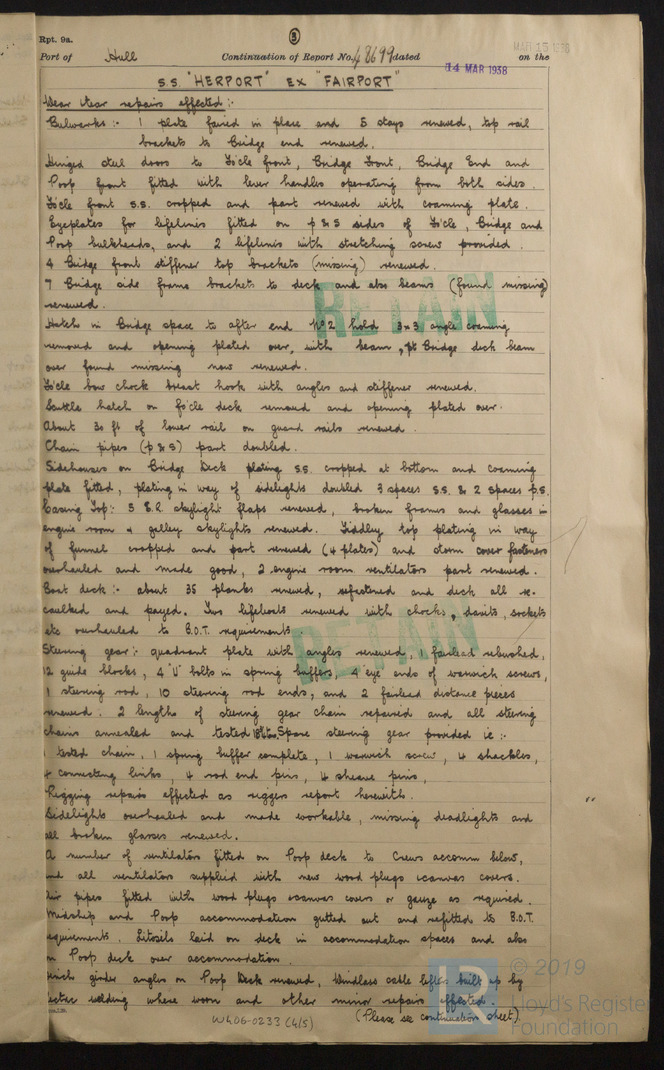 Rpt. 9a.
3
MAR 15 1938
Port of Hull Continuation of Report No. 48699 dated 14 MAR 1938 on the
S.S. "HERPORT" EX "FAIRPORT"
Wear & tear repairs effected :-
Bulwarks :- 1 plate faired in place and 5 stays renewed, top rail
brackets to Bridge end renewed.
Hinged steel doors to Fo'cle front, Bridge Front, Bridge End and
Poop front fitted with lever handles operating from both sides.
Fo'cle front S.S. cropped and part renewed with coaming plate.
Eyeplates for lifelines fitted on p & s sides of Fo'cle, Bridge and
Poop bulkheads, and 2 lifelines with stretching screw provided.
4 Bridge front stiffener top brackets (missing) renewed.
7 Bridge side frame brackets to deck and also beams (found missing)
renewed.
RETAIN
Hatch in Bridge space to after end No 2 hold 3 x 3 angle coaming
removed and opening plated over, with beam, pt Bridge deck beam
over found missing now renewed.
Fo'cle bow chock breast hook with angles and stiffener renewed.
Scuttle hatch on fo'cle deck removed and opening plated over.
About 30 ft of lower rail on guard rails renewed.
Chain pipes (p & s) part doubled.
Sidehouses on Bridge Deck plating S.S. cropped at bottom and coaming
plate fitted, plating in way of sidelights doubled 3 spaces S.S. & 2 spaces p.s.
Casing Top: 5 E.R. skylight flaps renewed, broken frames and glasses in
engine room & galley skylights renewed. Fiddley top plating in way
of funnel cropped and part renewed (4 plates) and storm cover fasteners
overhauled and made good, 2 engine room ventilators part renewed.
Boat deck :- about 35 planks renewed, refastened and deck all re-
caulked and payed. Two lifeboats renewed with chocks, davits, sockets
etc overhauled to B.O.T. requirements.
RETAIN
Steering gear: quadrant plate with angles renewed, fairlead rebushed,
12 guide blocks, 4 "U" bolts in spring buffers, 4 eye ends of warwick screws,
1 steering rod, 10 steering rod ends, and 2 fairlead distance pieces
renewed. 2 lengths of steering gear chain repaired and all steering
chains annealed and tested Spare steering gear provided ie :-
1 tested chain, 1 spring buffer complete, 1 warwick screw, 4 shackles,
4 connecting links, 4 rod end pins, 4 sheave pins,
Rigging repairs effected as riggers report herewith.
Sidelights overhauled and made workable, missing deadlights and
all broken glasses renewed.
A number of ventilators fitted on Poop deck to Crews accomm below,
and all ventilators supplied with new wood plugs & canvas covers.
Air pipes fitted with wood plugs & canvas covers or gauze as required.
Midship and Poop accommodation gutted out and refitted to B.O.T.
requirements. Litosils laid on deck in accommodation spaces and also
on Poop deck over accommodation.
Winch girder angles on Poop Deck renewed, Windlass cable lifter built up by
electric welding where worn and other minor repairs effected.
(Please see continuation sheet).
W406-0233 (4/5)
LR
© 2019
Lloyd's Register
Foundation